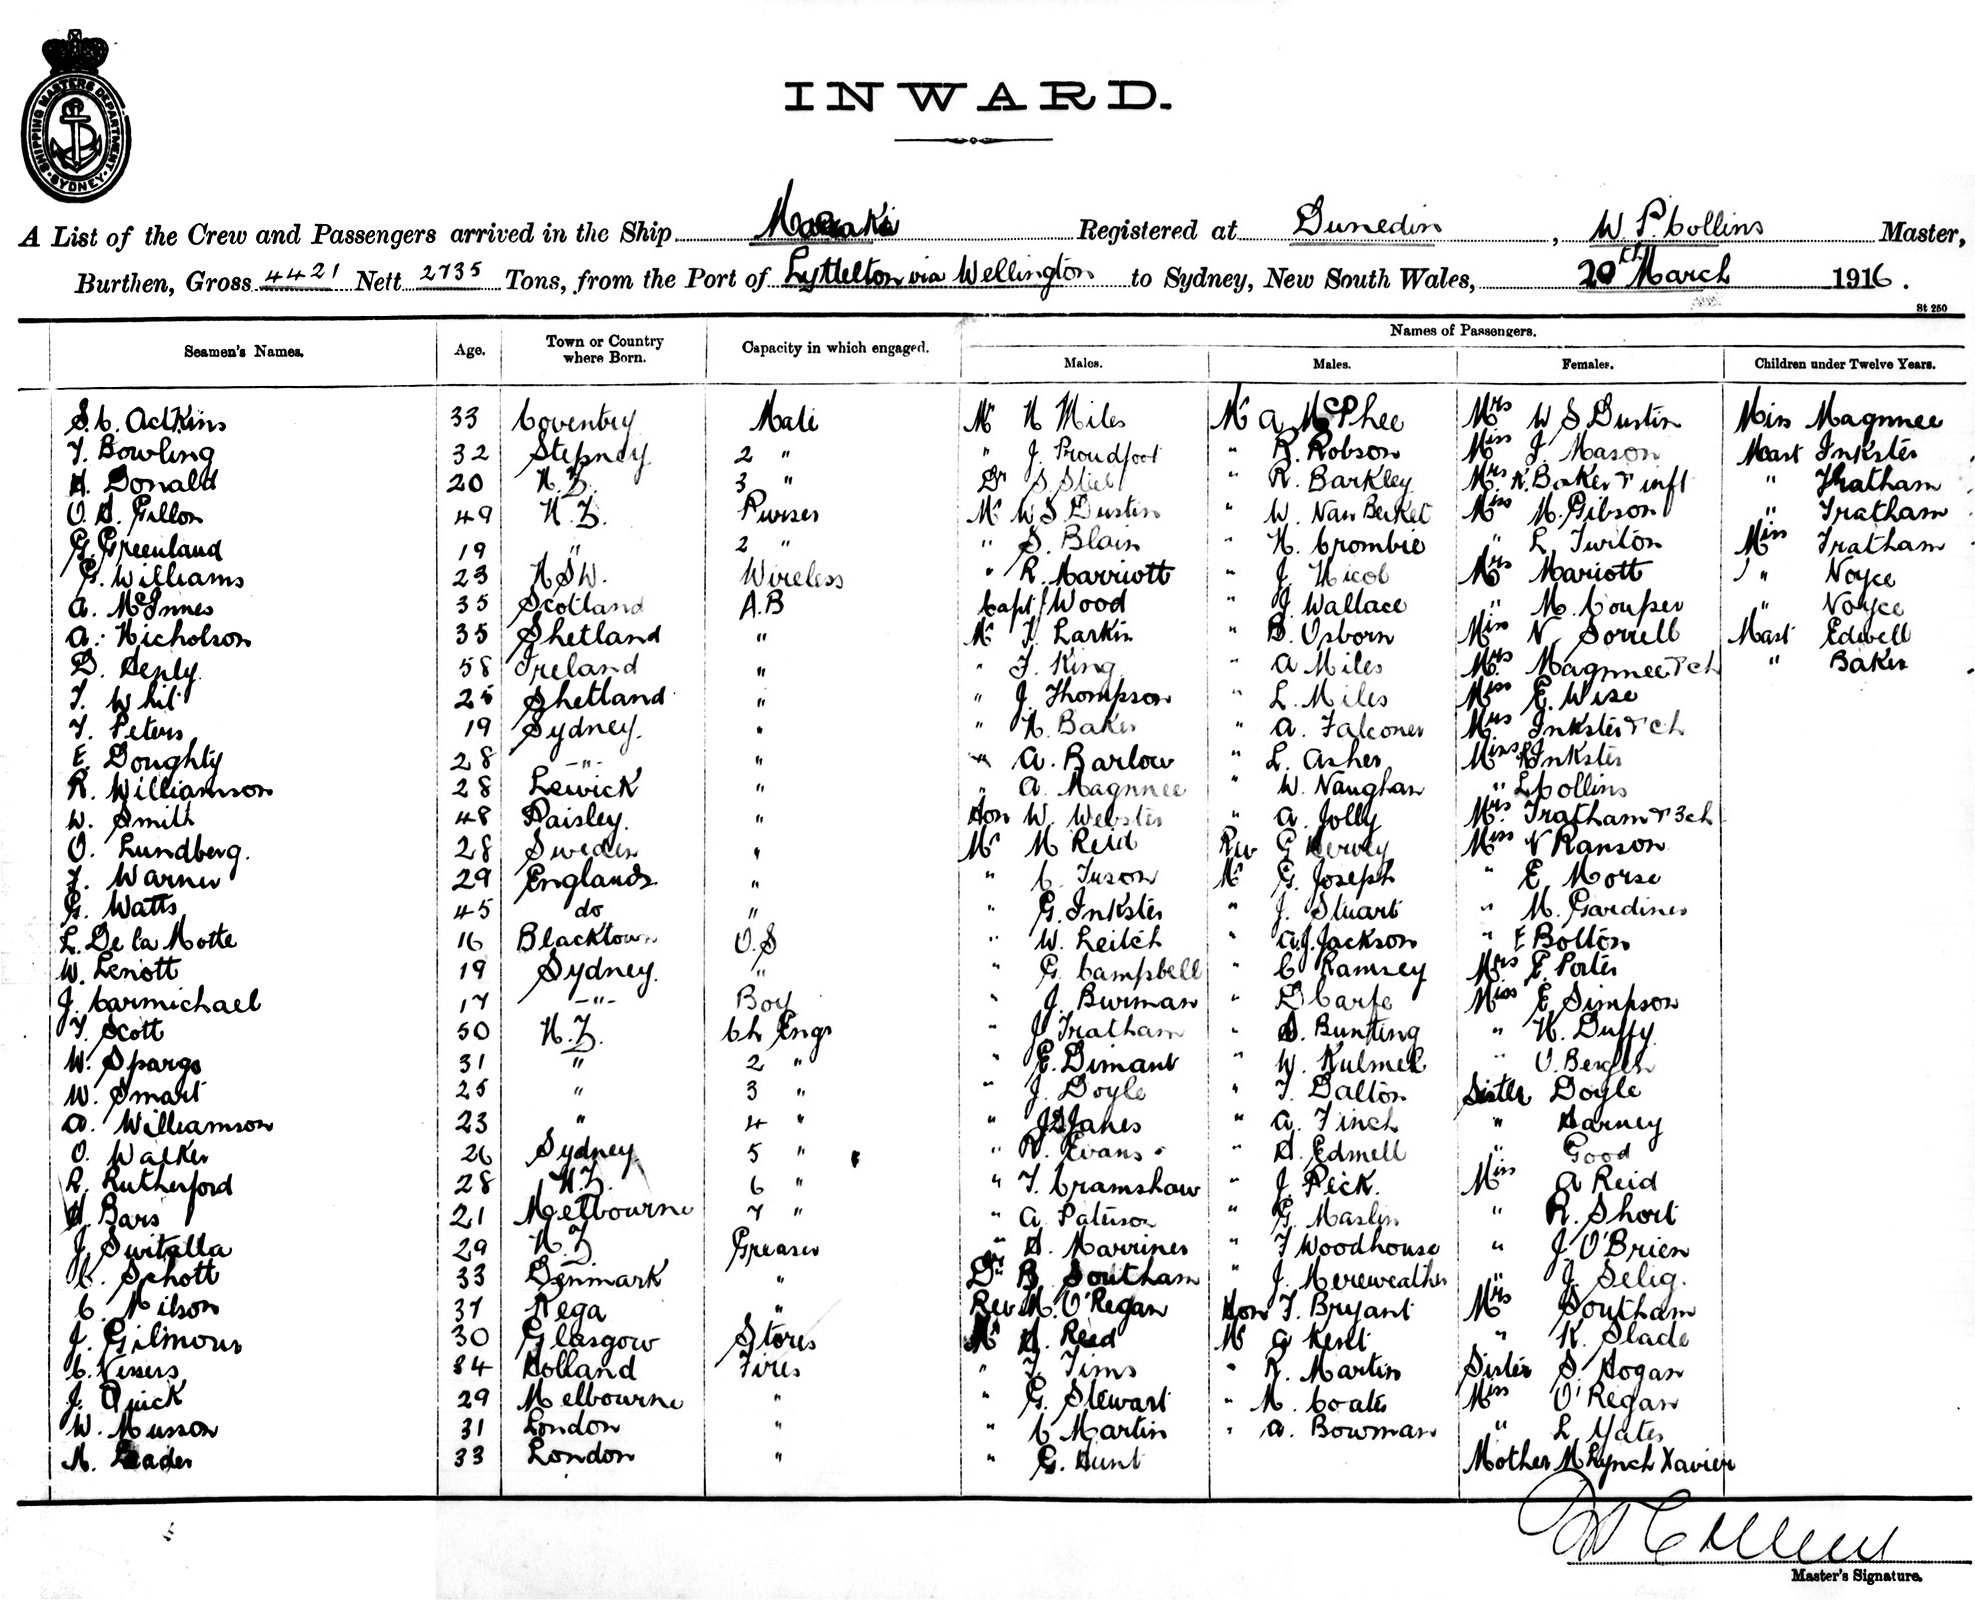 SHIPPING MASTERS DEPARTMENT. SYDNEY.
INWARD.
A List of the Crew and Passengers arrived in the Ship Registered at Dunedin, W. P. Collins Master,
Burthen, Gross 4421 Nett 2735 Tons, from the Port of Lyttelton via Wellington to Sydney, New South Wales, 20th March 1916.
St 250
Names of Passengers.
Seamen's Names. Age. Town or Country where Born. Capacity in which engaged. Males. Males. Females. Children under Twelve Years.
S. C. Adkins 33 Coventry Mate Mr N Miles Mr A McPhee Mrs W S Dustin Miss Magnnee
T. Bowling 32 Stepney 2 " " J. Proudfoot " R. Robson Miss J. Mason Mast Inkster
H. Donald 20 N.Z. 3 " Dr S " R. Barkley Mrs K. Baker & inft " Thatham
O. H. Gillon 49 N.Z. Purser Mr W S Dustin " W. Van Berket Miss M. Gibson " Tratham
G. Greenland 19 " 2 " " S. Blain " N. Crombie " L Twiton Miss Tratham
G. Williams 23 N.S.W. Wireless " R. Marriott " J. Nicol Mrs Mariott " Noyce
A. McInnes 35 Scotland A.B Capt J Wood " J. Wallace " M. Couper " Noyce
A. Nicholson 35 Shetland " Mr T. Larkin " B. Osborn Miss N. Sorrell Mast Edwell
D. Henly 58 Ireland " " F. King " A Miles Mrs Magnnee & ch " Baker
T. Whit 25 Shetland " " J. Thompson " L. Miles Miss E. Wise
T. Peters 19 Sydney. " " N. Baker " A. Falconer Mrs Inkster & ch
E. Doughty 28 -"- " " A. Barlow " L. Asher Miss Inkster
R. Williamson 28 Lewick " " A. Magnnee " W. Vaughan " L Collins
W. Smith 48 Paisley. " Hon W. Webster " A. Jolly Mrs Tratham & 3 ch
O. Lundberg. 28 Sweden " Mr M Reid Rev G Hervey Miss V Ranson
F. Warner 29 England " " C. Tuson Mr G. Joseph " E Morse
G. Watts 45 do " " G. Inkster " J. Stuart " M. Gardiner
L. De la Motte 16 Blacktown O.S " W. Leitch " A. J. Jackson " E Bolton
W. Lenott 19 Sydney. " " G. Campbell " C Ramsey Mrs E. Porter
J. Carmichael 17 -"- Boy " J. Burman " D Carfe Miss E. Simpson
T. Scott 50 N.Z. Ch Engr " J Tratham " S. Bunting " N. Duffy
W. Spargo 31 " 2 " " E. Dimant " W. Kulmer " O. Bergen
W. Smart 25 " 3 " " J. Doyle " T. Dalton Sister Doyle
A. Williamson 23 " 4 " " Janes " A. Finch " Harney
O. Walker 26 Sydney 5 " " R. Evans " H. Edmell " Good
R. Rutherford 28 N.Z. 6 " " T. Cramshaw " J. Peck. Miss A Reid
H Bars 21 Melbourne 7 " " A Paterson " G. Maslin " R. Short
J. Switalla 29 N.Z Greaser " H. Marriner " F Woodhouse " J. O'Brien
C. Schott 33 Denmark " Dr B Southam " J. Mereweather " J. Selig.
C. Milson 37 Rega " Rev M. O'Regan Hon T. Bryant Mrs Southam
J. Gilmour 30 Glasgow Stores Mr H. Reed Mr A Kent " K. Slade
C. Vissers 34 Holland Fires " T. Tims " R. Martin Sister S. Hogan
J. Quick 29 Melbourne " " G. Stewart " M. Coates Miss O'Regan
W. Musson 31 London " " C Martin " A. Bowman " L Yates
M. Leader 33 London " " G. Hunt Mother M Lynch Xavier
Master's Signature.